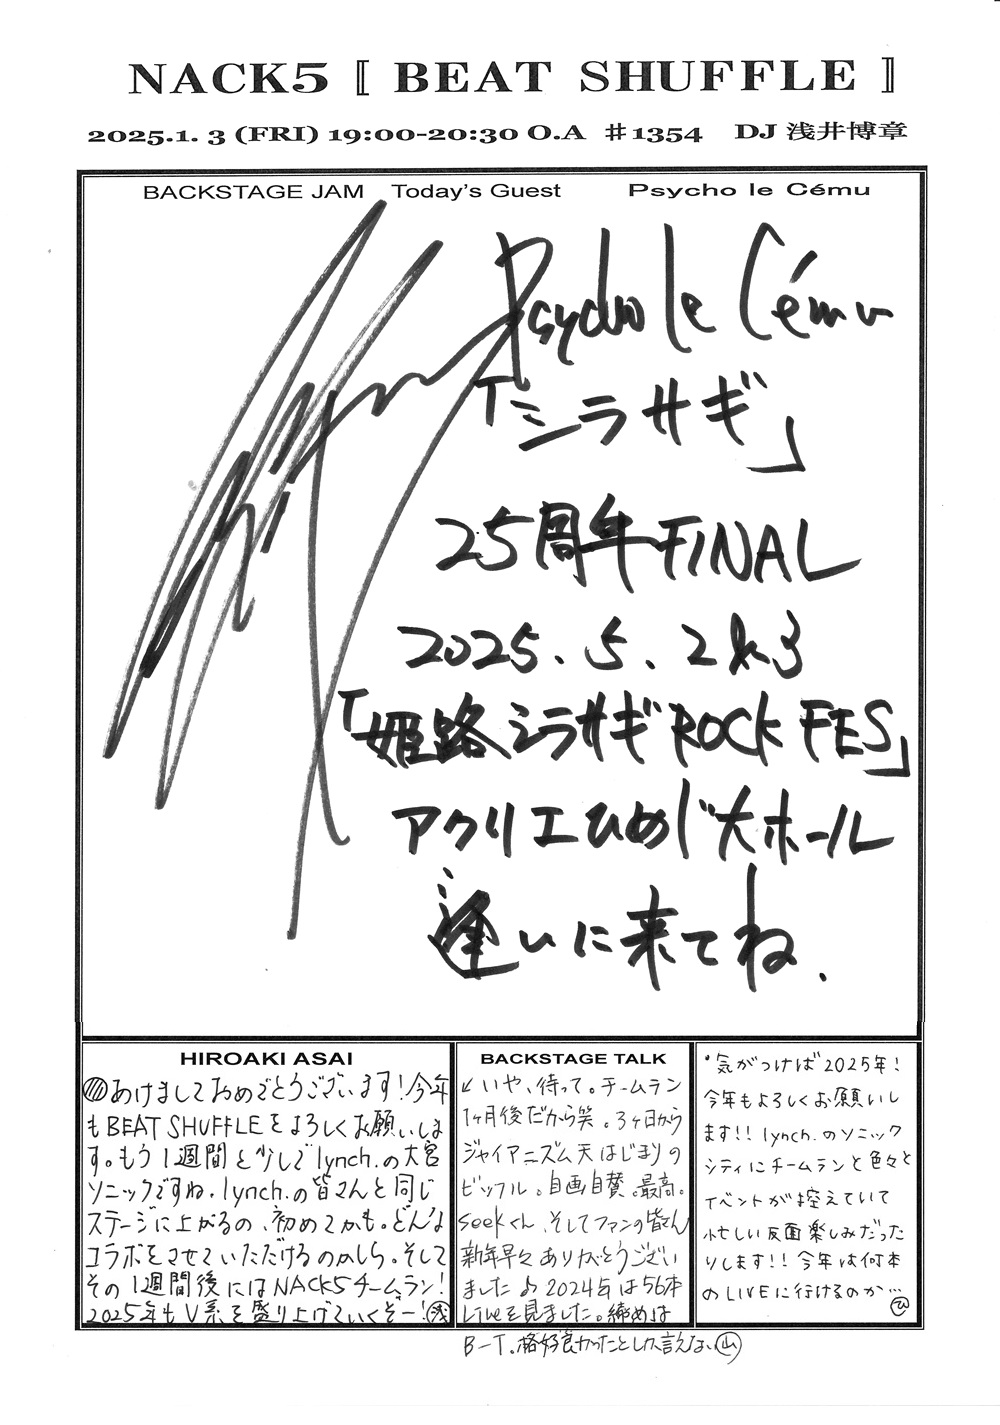 NACK5 〚 BEAT SHUFFLE 〛
2025.1. 3 (FRI) 19:00-20:30 O.A ♯1354 DJ 浅井博章
BACKSTAGE JAM Today's Guest Psycho le Cému
Psycho le Cému
「シラサギ」
25周年FINAL
2025.5.2&3
「姫路シラサギROCK FES」
アクリエひめじ大ホール
逢いに来てね.
HIROAKI ASAI
あけましておめでとうございます!今年
もBEAT SHUFFLEをよろしくお願いしま
す。もう1週間と少しでlynch.の大宮
ソニックですね。lynch.の皆さんと同じ
ステージに上がるの、初めてかも。どんな
コラボをさせていただけるのかしら。そして
その1週間後にはNACK5チームラン!
2025年もV系を盛り上げていくぞー!浅
BACKSTAGE TALK
↙いや、待って。チームラン
1ヶ月後だから笑。3ヶ日から
ジャイアニズム天はじまりの
ビッフル。自画自賛。最高。
seekくん、そしてファンの皆さん
新年早々ありがとうござい
ました♪2024年は56本
Liveを見ました。締めは
B-T。格好良かったとしか言えない山
・気がつけば2025年!
今年もよろしくお願いし
ます!!lynch.のソニック
シティにチームランと色々と
イベントが控えていて
忙しい反面楽しみだった
りします!!今年は何本
のLIVEに行けるのか…ひ